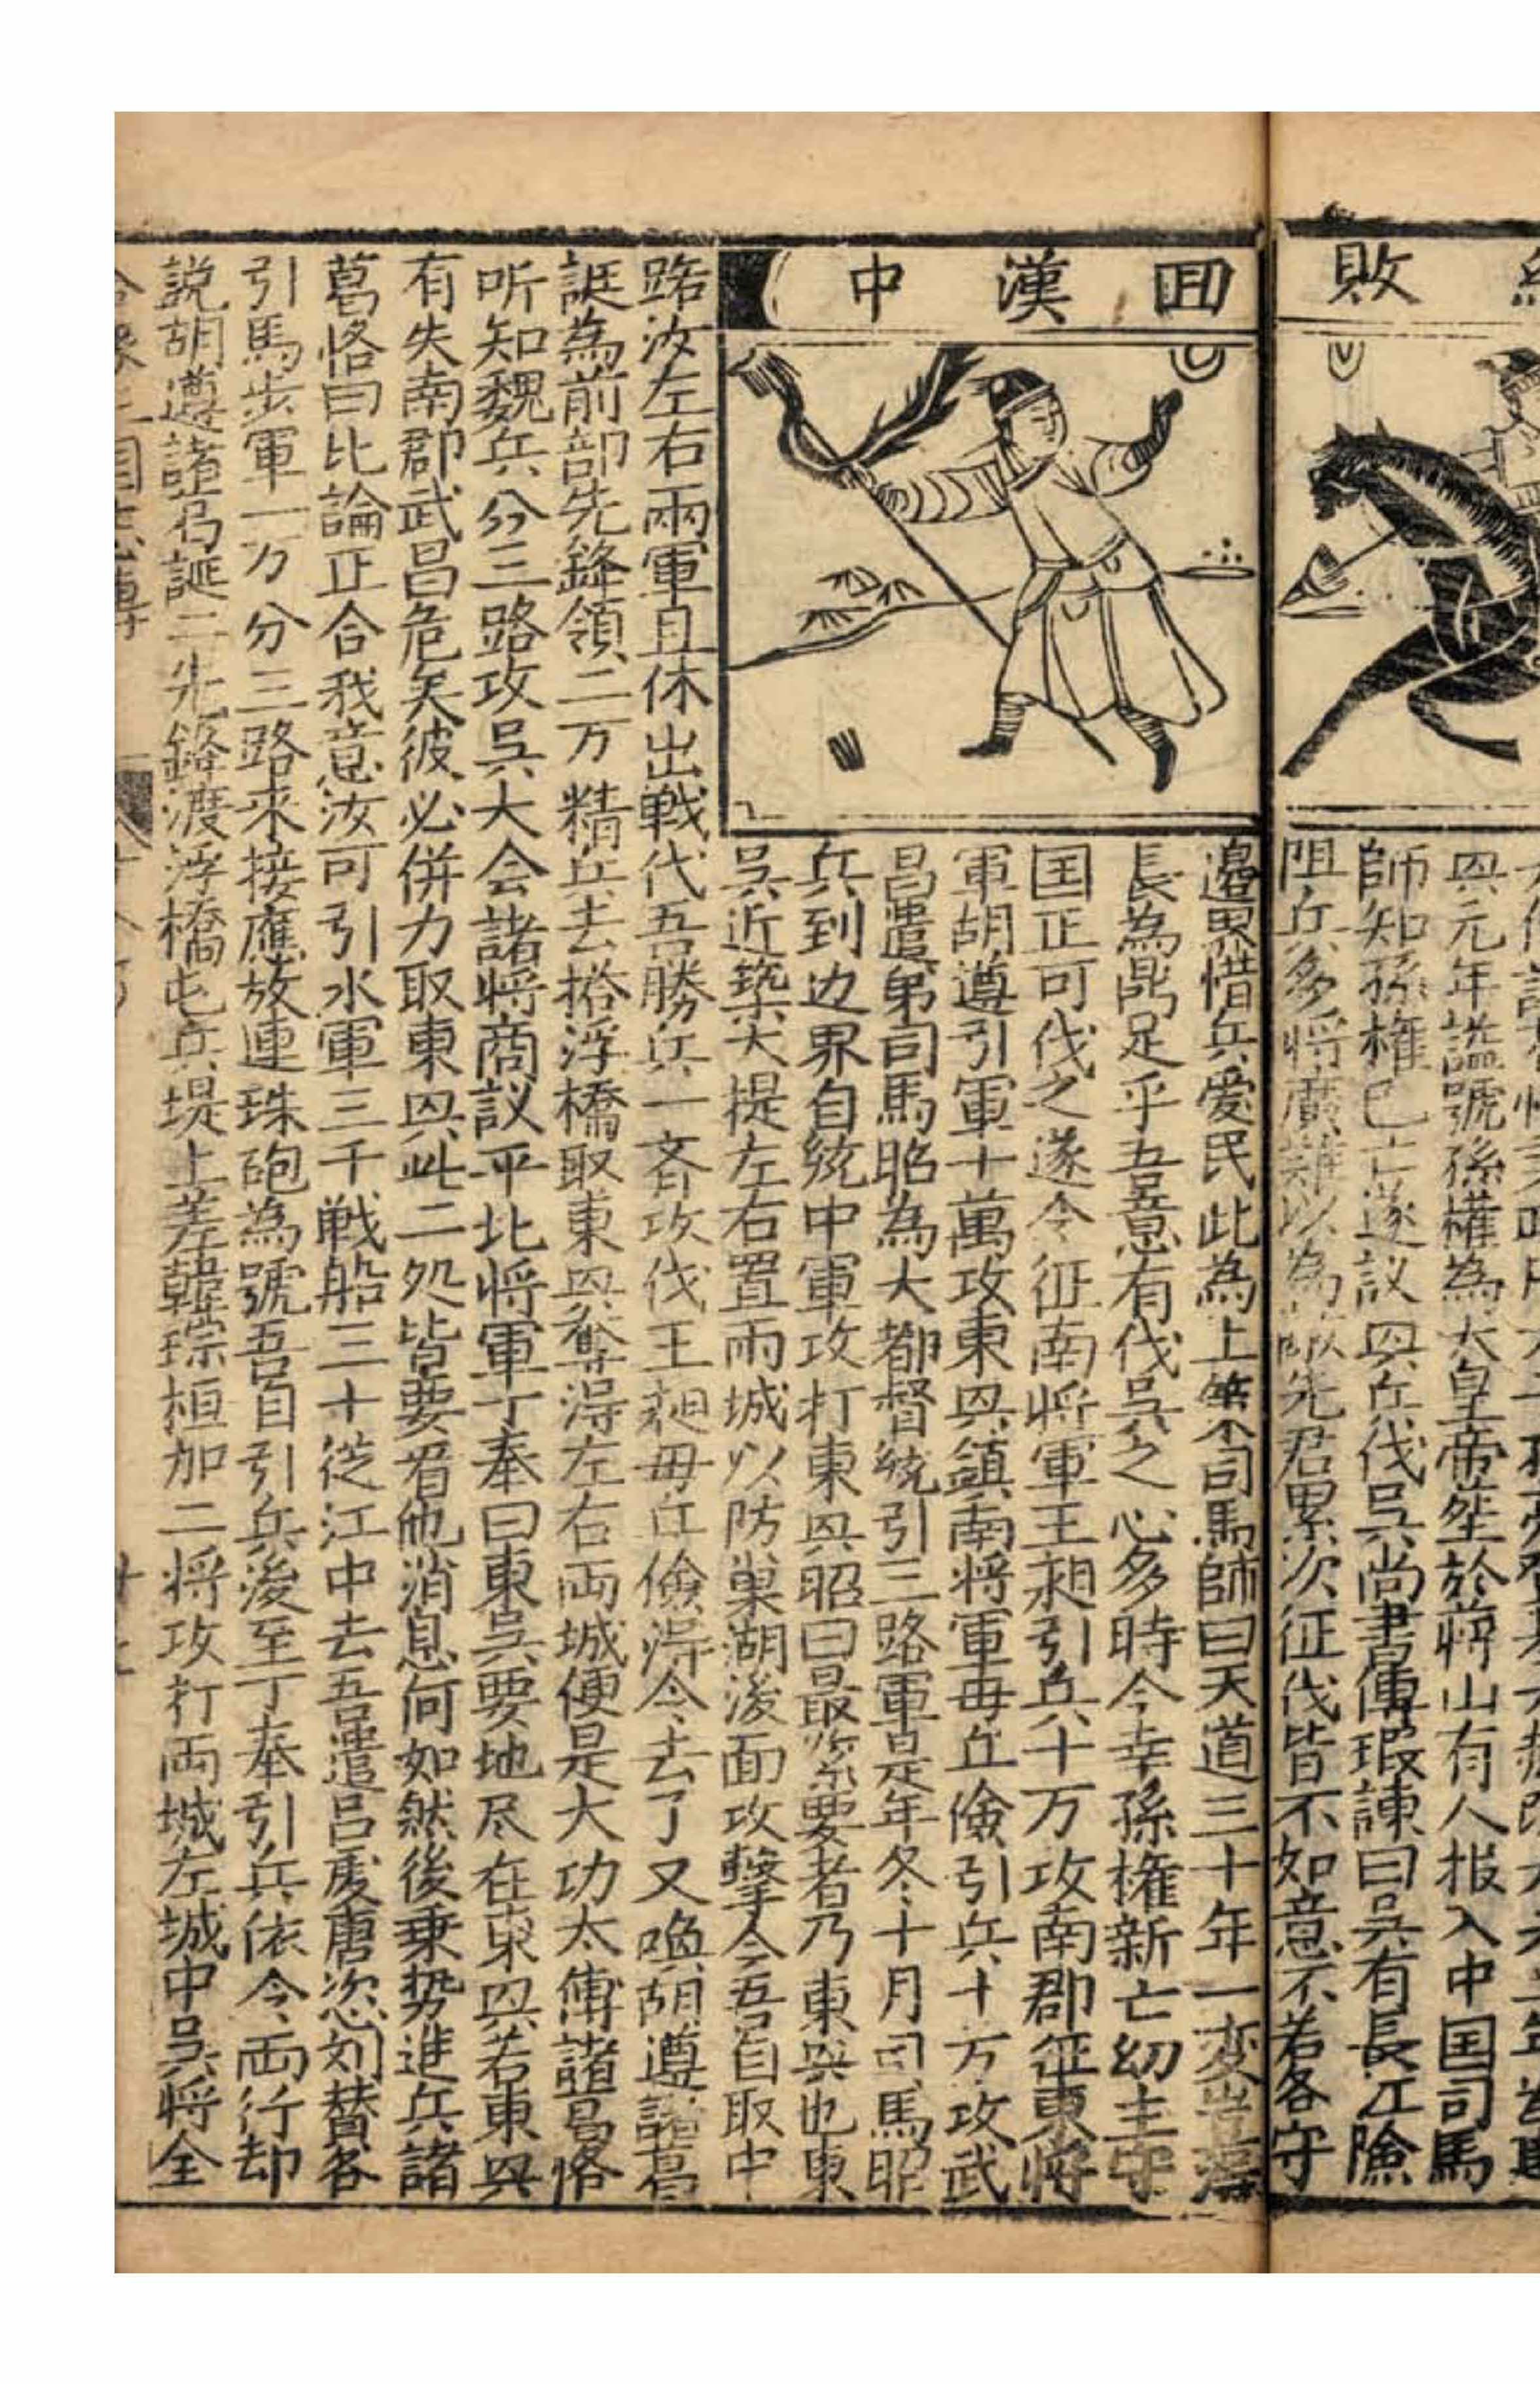 敗
吳元年謚號孫權為大皇帝塟於蔣山有人报入中国司馬
師知孫權已亡遂议興兵伐吳尚書傅瑕諫曰吳有長江險
阻兵多將廣難以為敵先君累次征伐皆不如意不若各守
回漢中
邉界惜兵爱民此為上策司馬師曰天道三十年一变豈得
長為鼎足乎吾意有伐吳之心多時今幸孫權新亡幼主守
国正可伐之遂令征南将軍王昶引兵十万攻南郡征東将
軍胡遵引軍十萬攻東興鎮南将軍毋丘儉引兵十万攻武
昌遣弟司馬昭為大都督統引三路軍是年冬十月司馬昭
兵到边界自統中軍攻打東興昭曰最紧要者乃東興也東
吳近築大提左右置兩城以防巢湖後面攻擊今吾自取中
路汝左右兩軍且休出戦代吾勝兵一斉攻伐王昶毋丘儉得令去了又喚胡遵諸葛
誕為前部先鋒領二万精兵去搭浮橋取東興奪得左右両城便是大功太傅諸葛恪
听知魏兵分三路攻吳大会諸将商议平北将軍丁奉曰東吳要地尽在東興若東興
有失南郡武昌危矣彼必併力取東興此二処皆要看他消息何如然後乗势進兵諸
葛恪曰比論正合我意汝可引水軍三千戦船三十從江中去吾遣呂㨿唐恣刘賛各
引馬步軍一万分三路來接應放連珠砲為號吾自引兵後至丁奉引兵依令両行却
說胡遵諸葛誕二先鋒渡浮橋屯兵堤上差韓琮桓加二将攻打両城左城中吳将全